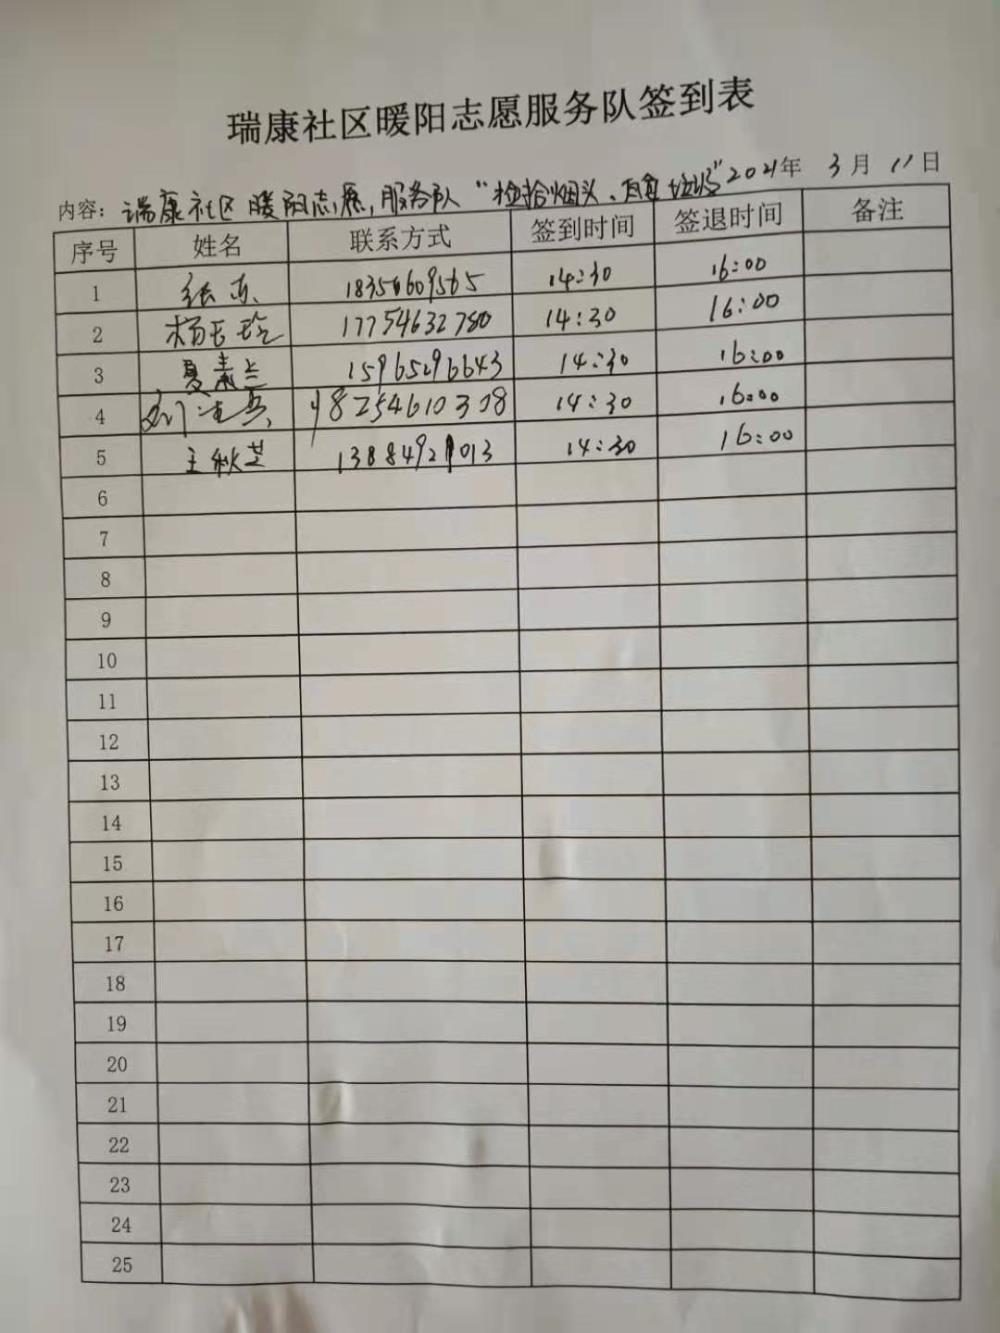 瑞康社区暖阳志愿服务队签到表
内容：瑞康社区暖阳志愿服务队“捡拾烟头、白色垃圾”2021年 3月 11日
序号 姓名 联系方式 签到时间 签退时间 备注
1 张 18356609565 14:30 16:00
2 杨玉玲 17754632780 14:30 16:00
3 夏素兰 15965296643 14:30 16:00
4 刘 18254610308 14:30 16:00
5 王秋芝 13884921013 14:30 16:00
6
7
8
9
10
11
12
13
14
15
16
17
18
19
20
21
22
23
24
25